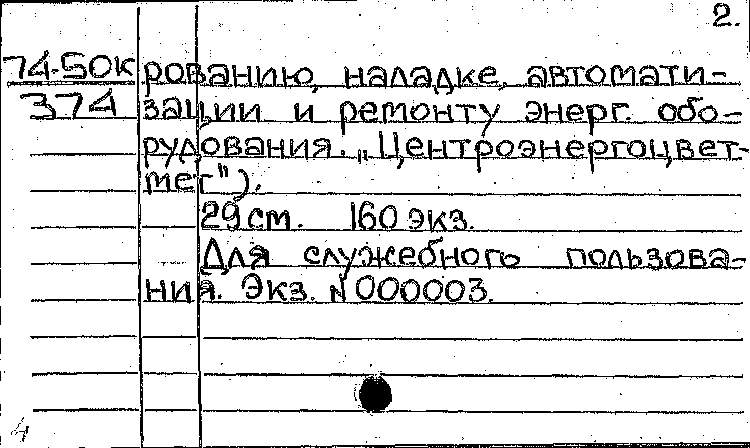 2.
74-5ОК рованию, наладке, автомати-
374 зации и ремонту энерг. обо-
рудования. „Центроэнергоцвет-
мет").
29 см. 160 экз.
Для служебного пользова-
ния. Экз. N 000003.
4